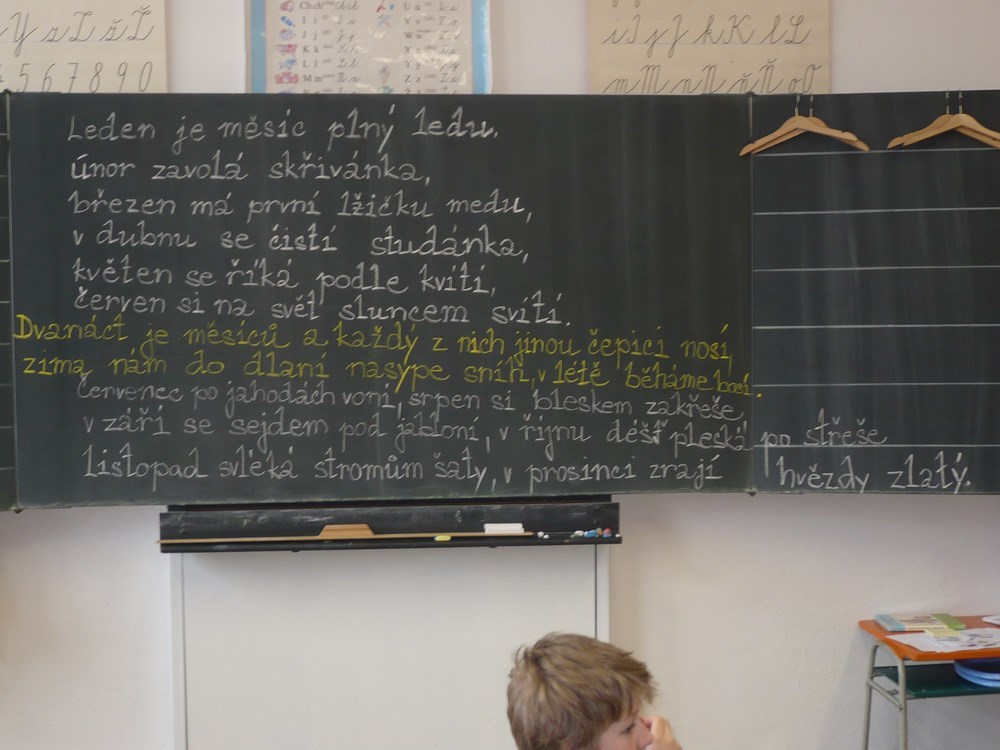 Y z Z ž Ž
5 6 7 8 9 0
i I j J k K l L
m M n N ň Ň o O
Leden je měsíc plný ledu.
únor zavolá skřivánka,
březen má první lžičku medu,
v dubnu se čistí studánka,
květen se říká podle kvítí,
červen si na svět sluncem svítí.
Dvanáct je měsíců a každý z nich jinou čepici nosí,
zima nám do dlaní nasype sníh, v létě běháme bosí.
červenec po jahodách voní, srpen si bleskem zakřeše,
v září se sejdem pod jabloní, v říjnu déšť pleská po střeše
listopad svléká stromům šaty, v prosinci zrají hvězdy zlatý.